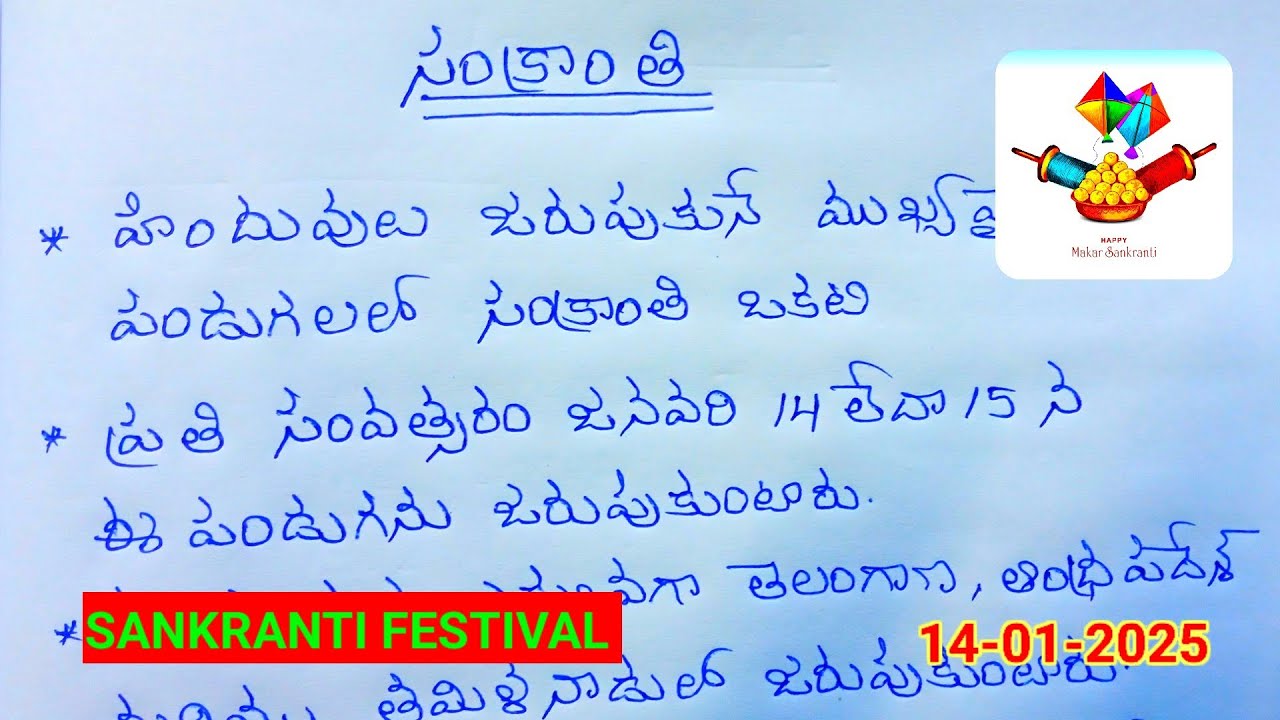 సంక్రాంతి
* హిందువులు జరుపుకునే
HAPPY
Makar Sankranti
పండుగలలో సంక్రాంతి ఒకటి
* ప్రతి సంవత్సరం జనవరి 14 లేదా 15 న
ఈ పండుగను జరుపుకుంటారు.
* తెలంగాణ, ఆంధ్రప్రదేశ్
SANKRANTI FESTIVAL
14-01-2025
తమిళనాడులో జరుపుకుంటారు.